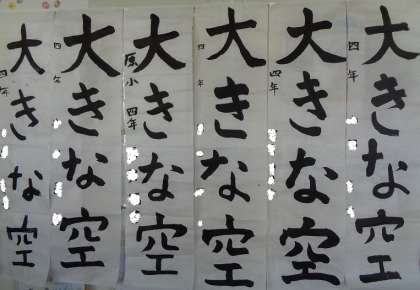 大きな空
四年
大きな空
四年
大きな空
四年
大きな空
原小 四年
大きな空
四年
大きな空
四年